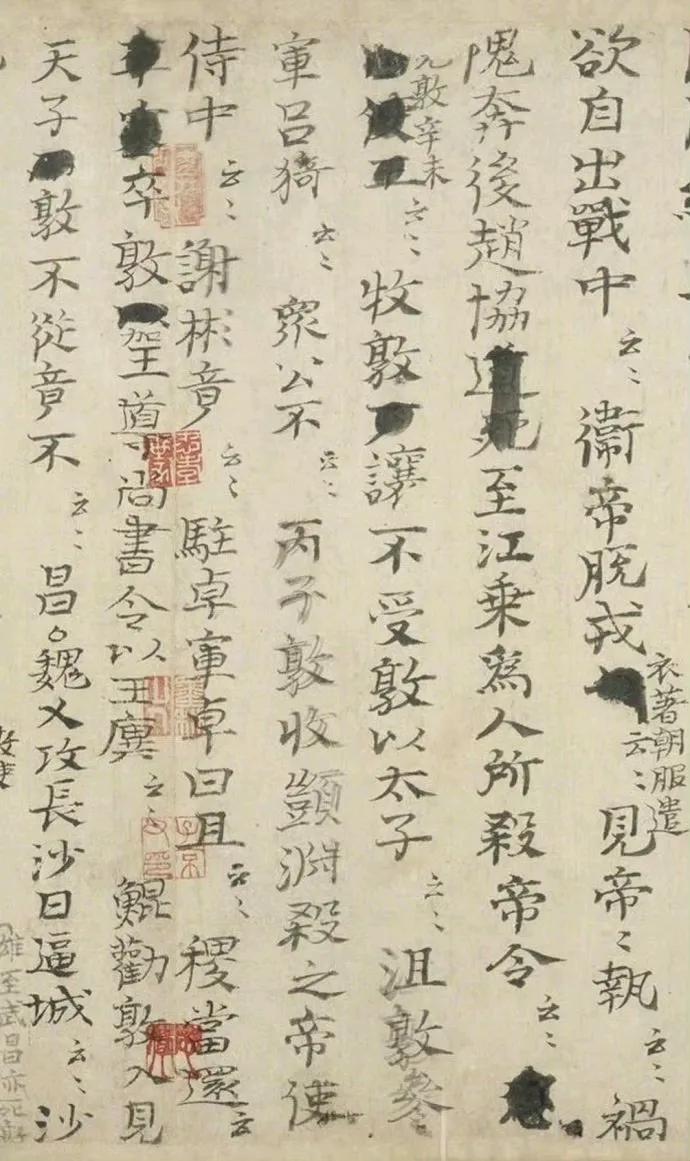 欲自出戰中云〻衛帝脫戎衣著朝服遣云〻見帝〻執云〻禍
隗奔後趙協道死至江乘爲人所殺帝令云〻
敦辛未云〻牧敦讓不受敦以太子云〻沮敦參
軍呂猗云〻衆公不云〻丙子敦收顗淵殺之帝使
侍中云〻謝彬音云〻駐卓軍卓曰且云〻稷當還云
卒敦王導尚書令以王廙云〻鯤勸敦入見
天子敦不從音不云〻昌魏乂攻長沙日逼城云〻沙
雄至武昌亦死